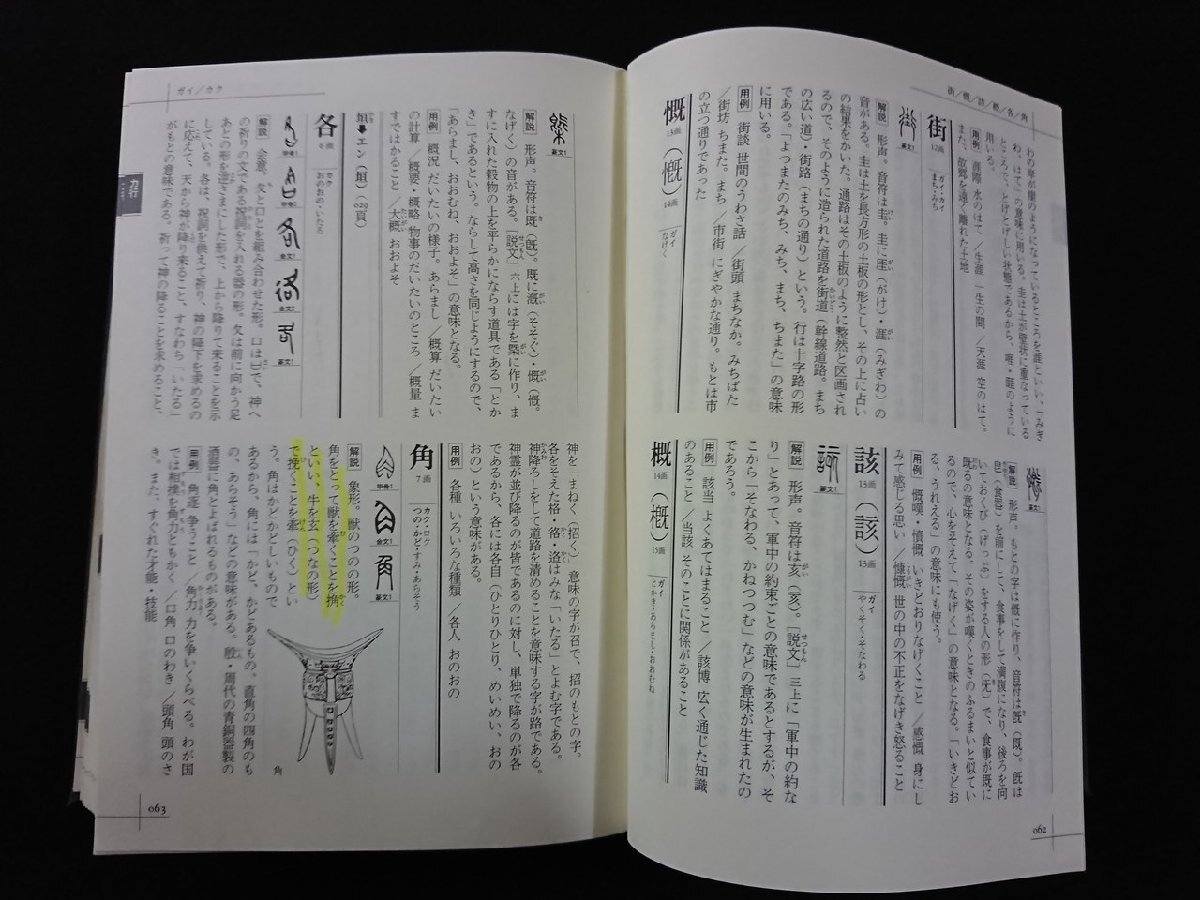 街／慨／該／概／各／角
わの厓が崖のようになっているところを涯といい、「みぎ
わ、はて」の意味に用いる。圭は土が層状に重なっている
ところで、とげとげしい状態であるから、崕・睚のように
用いる。
用例 涯際 水のはて／生涯 一生の間／天涯 空のはて。
また、故郷を遠く離れた土地
街
12画
ガイ・カイ
まち・みち
篆文1
解説 形声。音符は圭。圭に崖（がけ）・涯（みぎわ）の
音がある。圭は土を長方形の土板の形とし、その上に占い
の結果をかいた。通路はその土板のように整然と区画され
るので、そのように造られた道路を街道（幹線道路。まち
の広い道）・街路（まちの通り）という。行は十字路の形
である。「よつまたのみち、みち、まち、ちまた」の意味
に用いる。
用例 街談 世間のうわさ話／街頭 まちなか。みちばた
／街坊 ちまた。まち／市街 にぎやかな通り。もとは市
の立つ通りであった
慨（慨）
13画
14画
ガイ
なげく
篆文1
解説 形声。もとの字は慨に作り、音符は旣（既）。旣は
皀（食器）を前にして、食事をして満腹になり、後ろを向
いておくび（げっぷ）をする人の形（旡）で、食事が既に
既るの意味となる。その姿が嘆くときのふるまいと似てい
るので、心をそえて「なげく」の意味となる。「いきどお
る、うれえる」の意味にも使う。
用例 慨嘆・憤慨 いきどおりなげくこと／感慨 身にし
みて感じる思い／慷慨 世の中の不正をなげき怒ること
該（該）
13画
13画
ガイ
やくそく・そなわる
篆文1
解説 形声。音符は亥（亥）。［説文］三上に「軍中の約な
り」とあって、軍中の約束ごとの意味であるとするが、そ
こから「そなわる、かねつつむ」などの意味が生まれたの
であろう。
用例 該当 よくあてはまること／該博 広く通じた知識
のあること／当該 そのことに関係があること
概（概）
14画
15画
ガイ
とかき・あらまし・おおむね
062
ガイ／カク
カ行
篆文1
解説 形声。音符は既（旣）。既に漑（そそぐ）慨（慨。
なげく）の音がある。［説文］六上には字を槩に作り、ま
すに入れた穀物の上を平らかにならす道具である「とか
き」であるという。ならして高さを同じようにするので、
「あらまし、おおむね、おおよそ」の意味となる。
用例 概況 だいたいの様子。あらまし／概算 だいたい
の計算／概要・概略 物事のだいたいのところ／概量 ま
すではかること／大概 おおよそ
垣➡エン（垣）（029頁）
各
6画
カク
おのおの・いたる
甲骨1
甲骨2
金文1
金文2
篆文1
解説 会意。夂と口とを組み合わせた形。口は𠙵で、神へ
の祈りの文である祝詞を入れる器の形。夂は前に向かう足
あとの形を逆さまにした形で、上から降りて来ることを示
している。各は、祝詞を供えて祈り、神の降下を求めるの
に応えて、天から神が降り来ること、すなわち「いたる」
がもとの意味である。祈って神の降ることを求めること、
神を まねく（招く） 意味の字が召で、招のもとの字、
各をそえた格・佫・洛はみな「いたる」とよむ字である。
神降ろしをして道路を清めることを意味する字が路である。
神霊が並び降るのが皆であるのに対し、単独で降るのが各
であるから、各には各自（ひとりひとり、めいめい、おの
おの）という意味がある。
用例 各種 いろいろな種類／各人 おのおの
角
7画
カク・ロク
つの・かど・すみ・あらそう
甲骨1
金文1
篆文1
解説 象形。獣のつのの形。
角をとって獣を牽くことを捔
といい、牛を玄（つなの形）
で挽くことを牽（ひく）とい
う。角はかどかどしいもので
あるから、角には「かど、かどあるもの。直角の四角のも
の、あらそう」などの意味がある。殷・周代の青銅器製の
酒器に角とよばれるものがある。
用例 角逐 争うこと／角力 力を争いくらべる。わが国
では相撲を角力ともかく／口角 口のわき／頭角 頭のさ
き。また、すぐれた才能・技能
角
063